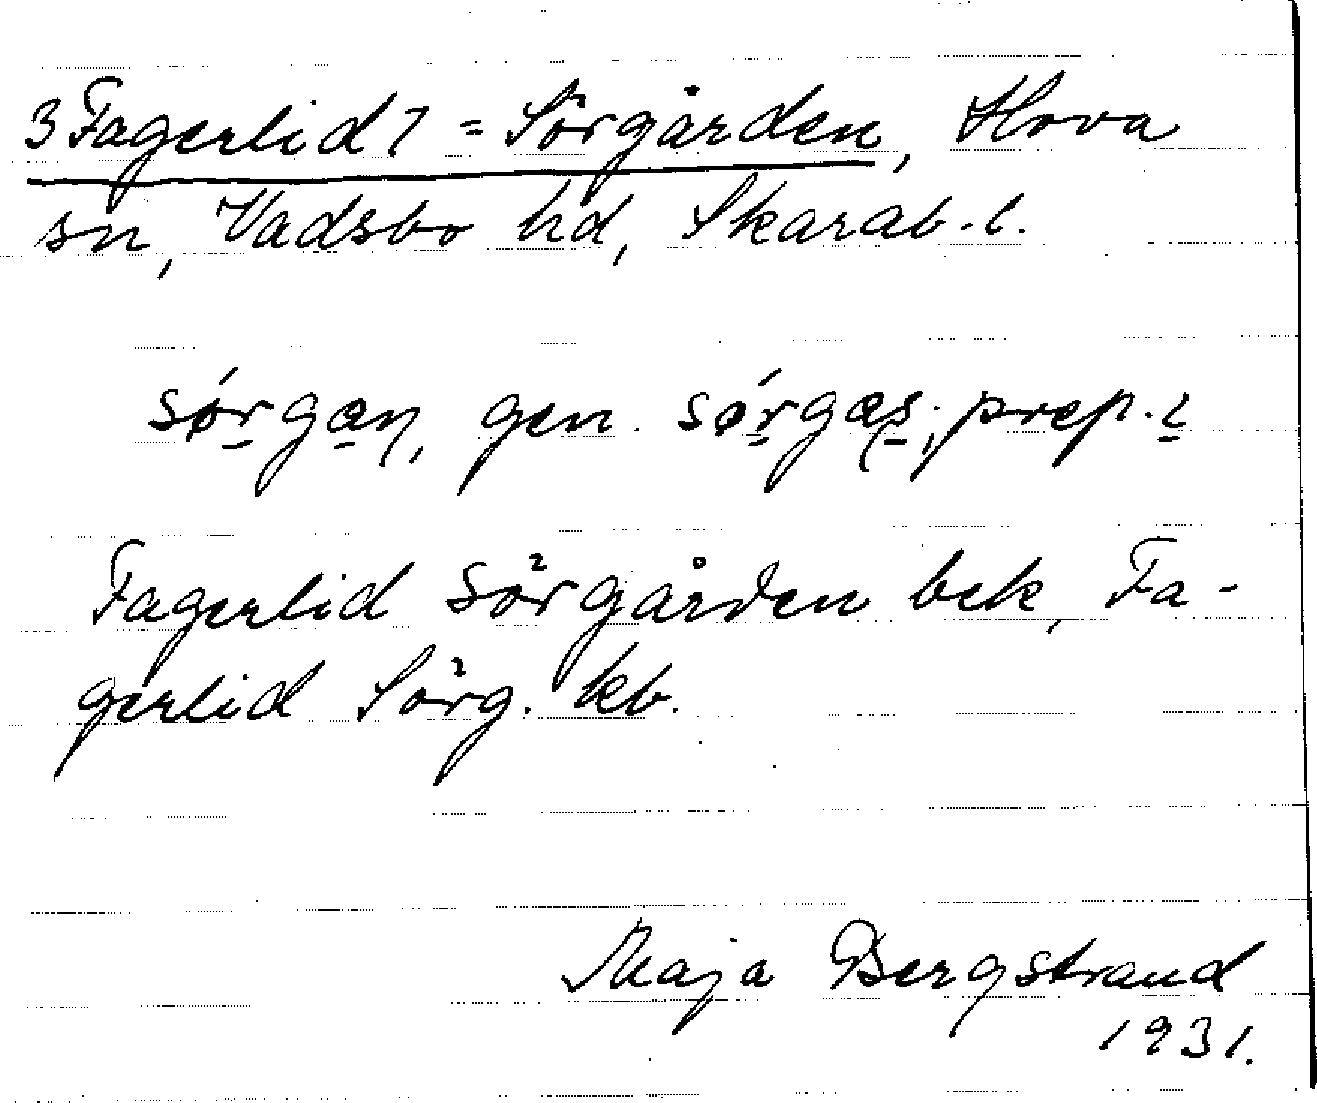 3 Fagerlid 7 = Sörgården, Hova
sn, Vadsbo hd, Skarab. l.
sǿrgan, gen. sǿrgas; prep. i
Fagerlid Sörgården bek, Fa-
gerlid Sörg. kb.
Maja Bergstrand
1931.